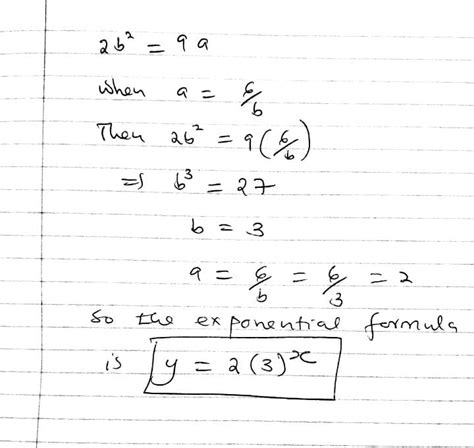 2b² = 9a
when a = 6/b
Then 2b² = 9(6/b)
⇒ b³ = 27
b = 3
a = 6/b = 6/3 = 2
so the exponential formula
is y = 2(3)^x